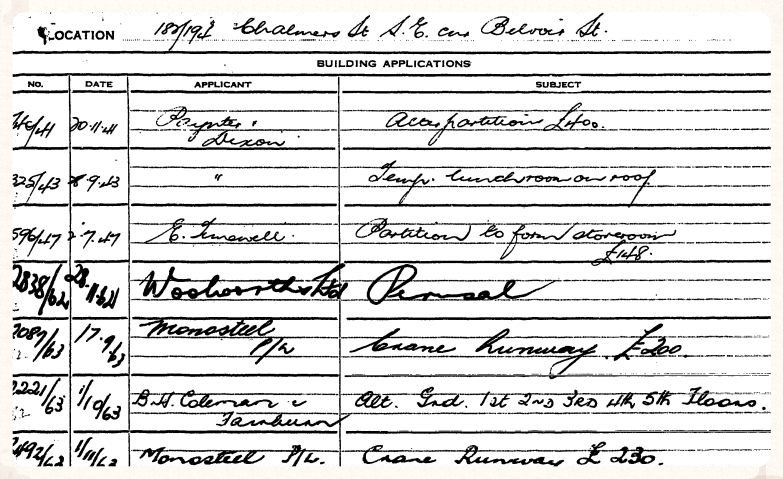 LOCATION Chalmers St S.E. cnr Belvoir St.
BUILDING APPLICATIONS
NO. DATE APPLICANT SUBJECT
20.11.41 Paynter & partition £400.
Dixon
325/43 8.9.43 " Temp. lunchroom on roof
596/47 7.47 E. Partition to form storeroom
£148.
2838/62 28.11.62 Woolworths Ltd Perusal
/63 17.9/63 Monosteel
P/L Crane Runway. £200.
2221/63 1/10/63 B.H. Coleman & Alt. Gnd. 1st 2nd 3RD 4th 5th Floors.
Fairburn
1/11/63 Monosteel P/L. Crane Runway £230.